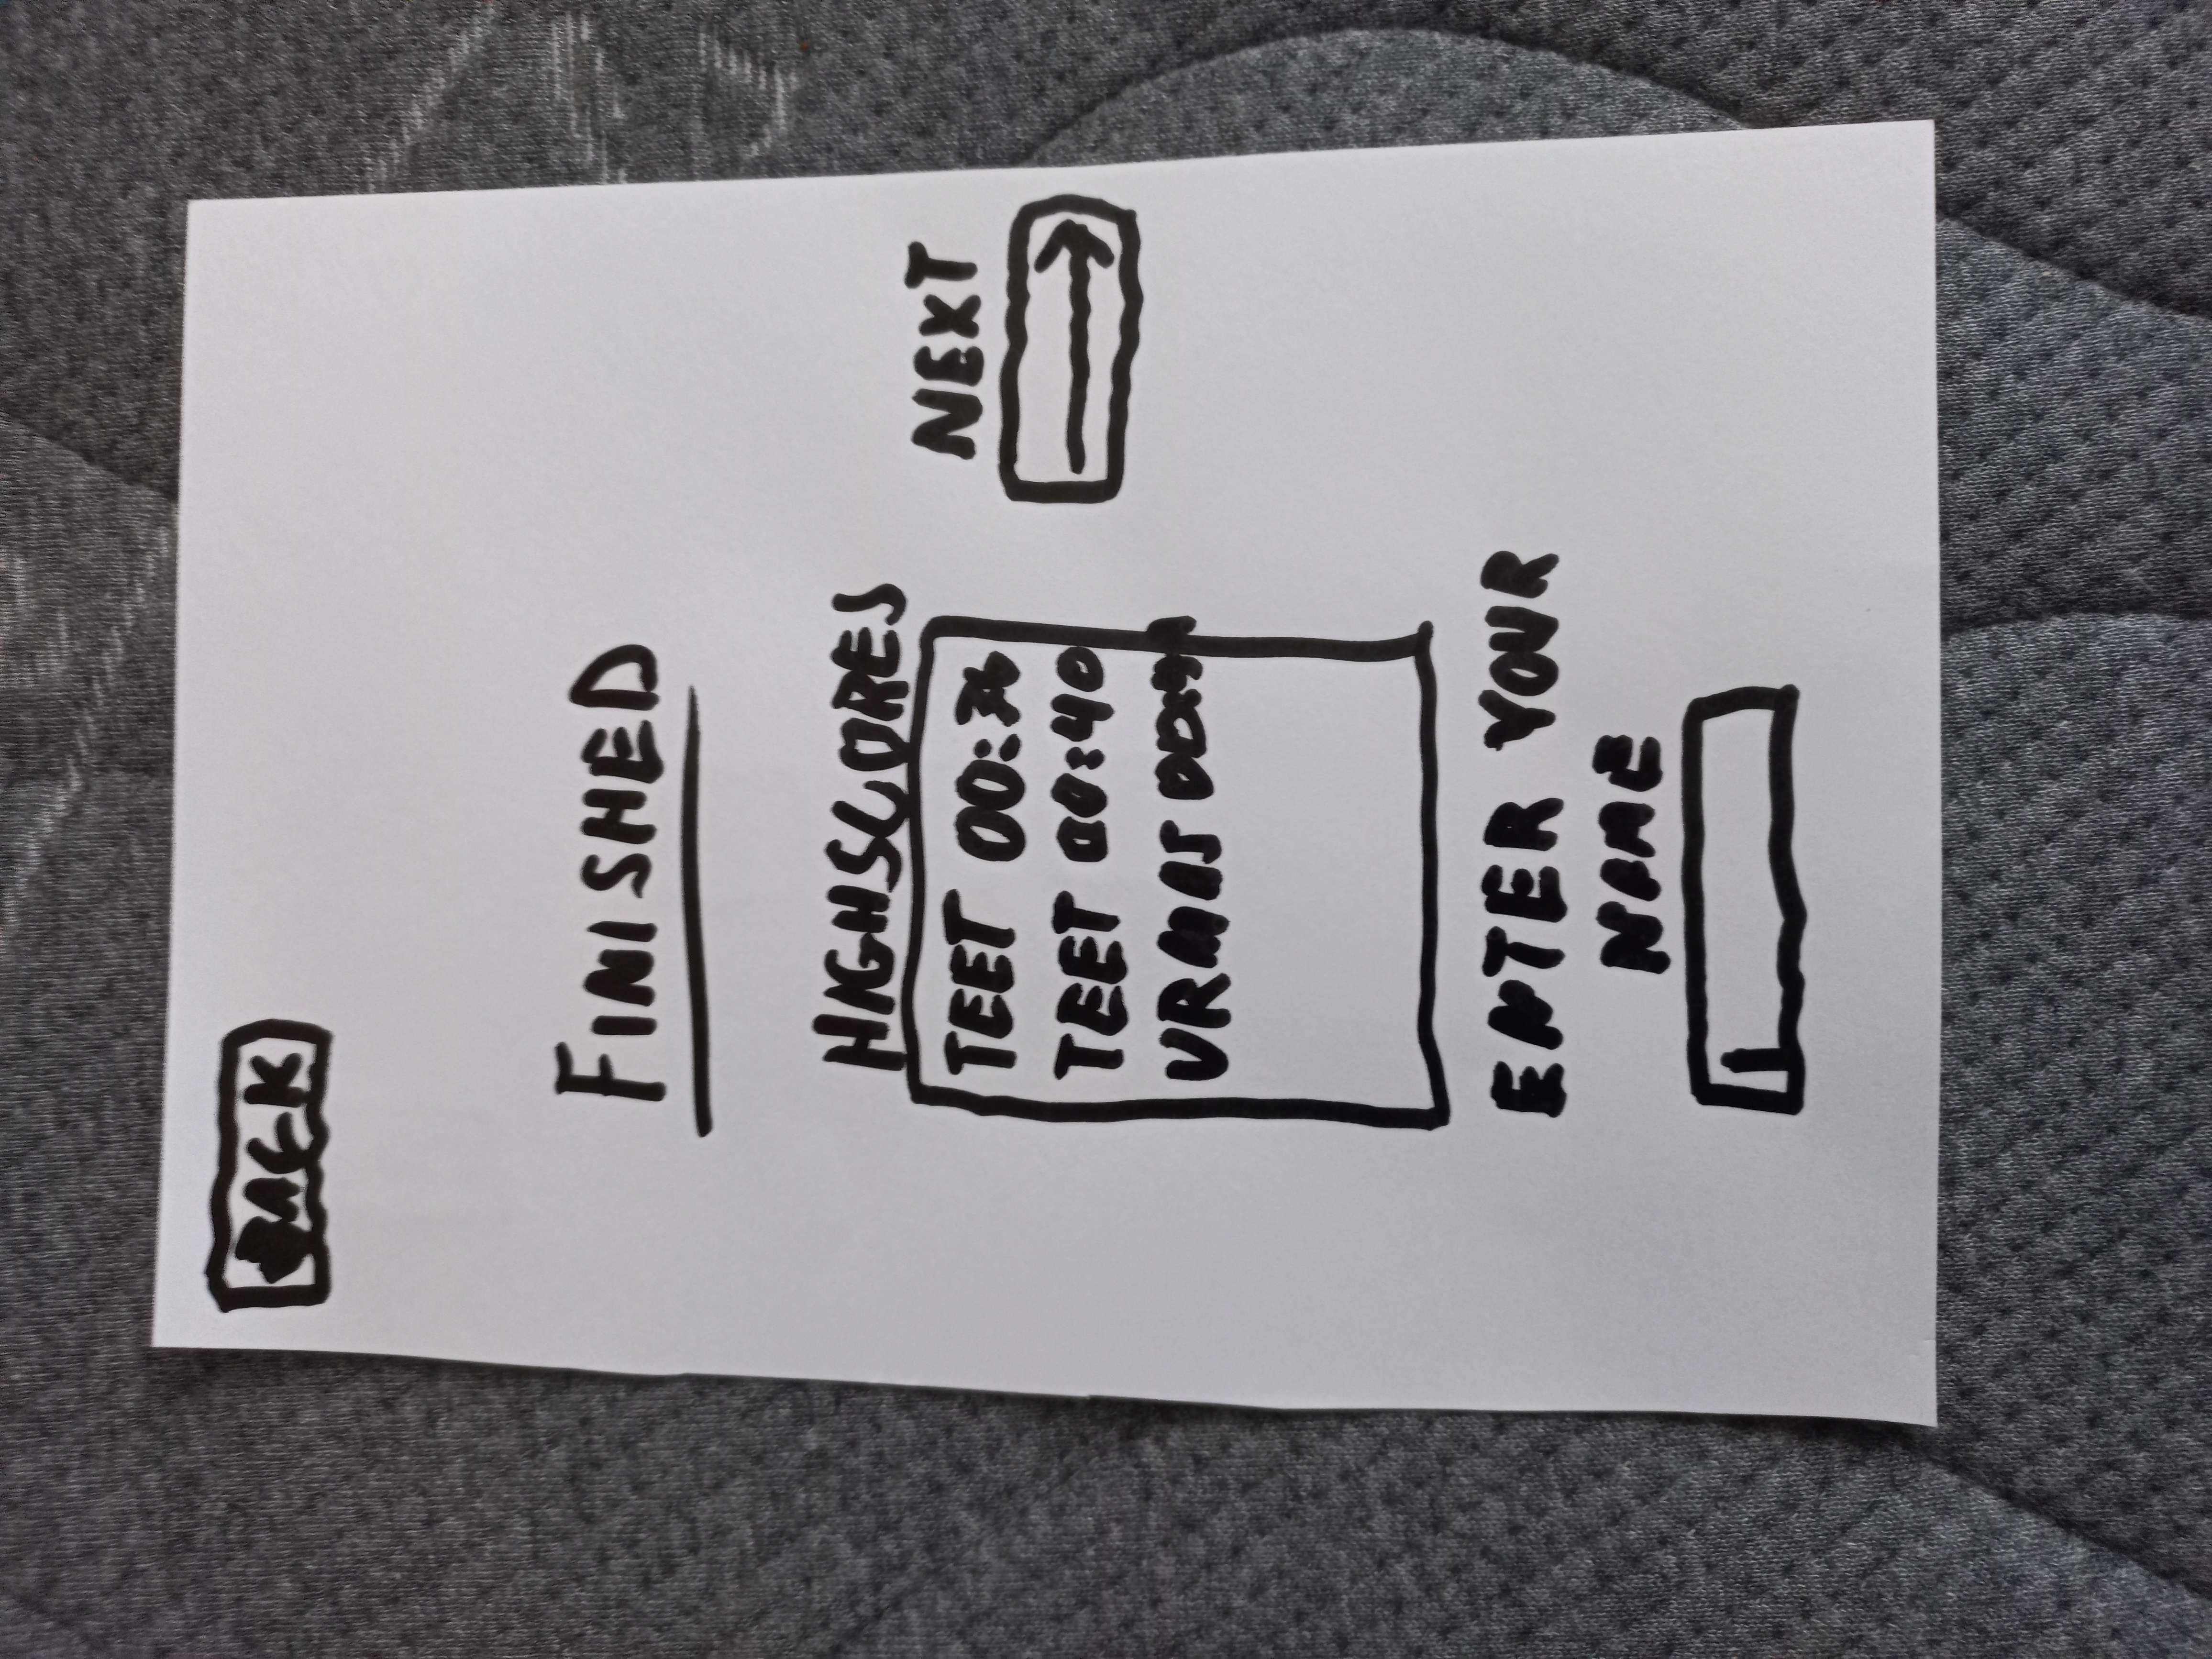 BACK
FINISHED
HIGHSCORES
TEET 00:36
TEET 00:40
URMAS
NEXT
ENTER YOUR
NAME